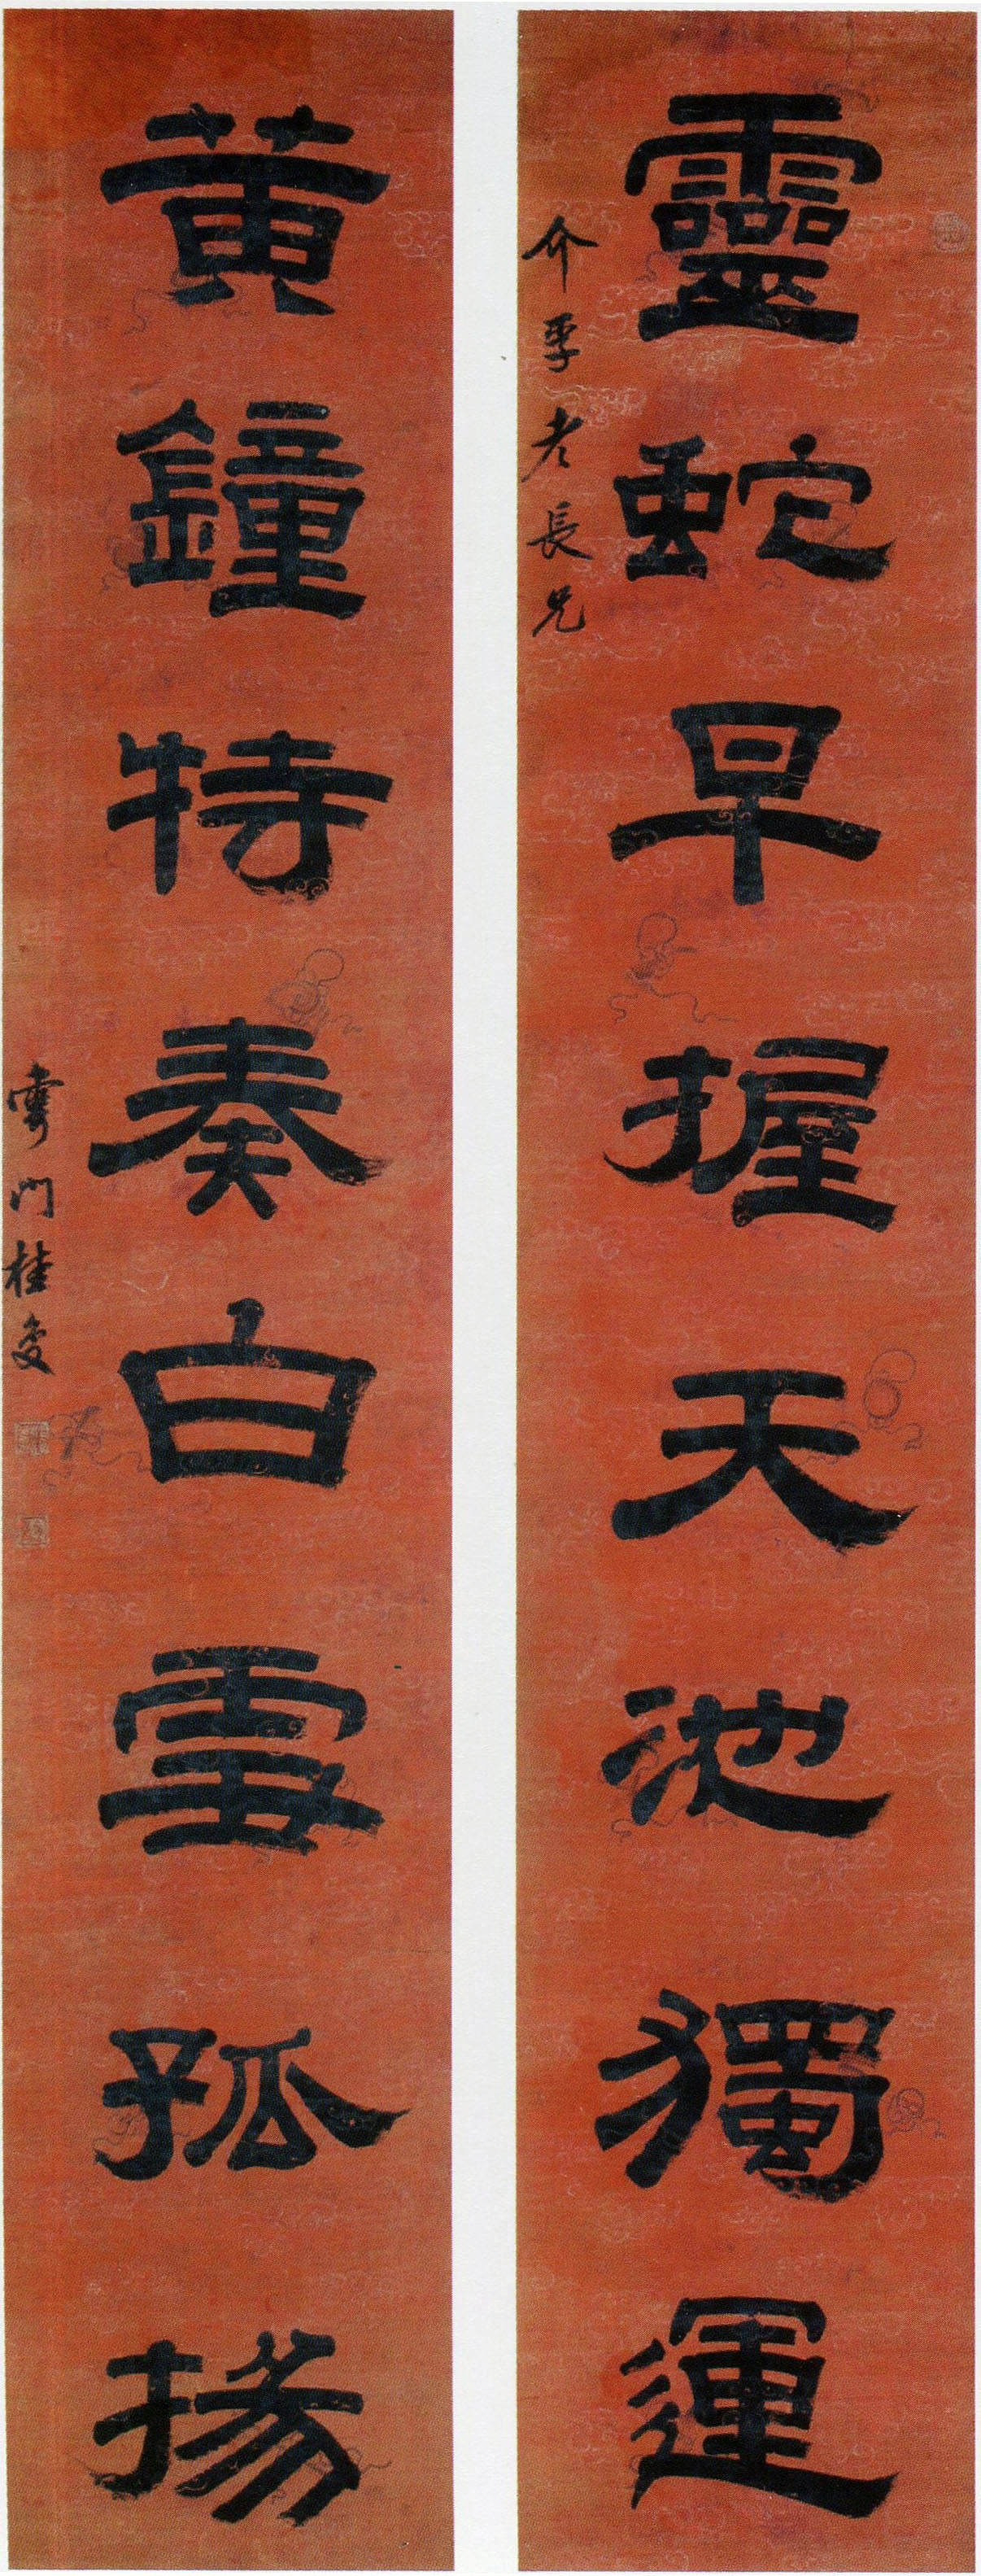 靈蛇早握天池獨運
介季老長兄
黃鐘特奏白雲孤揚
雩門桂馥